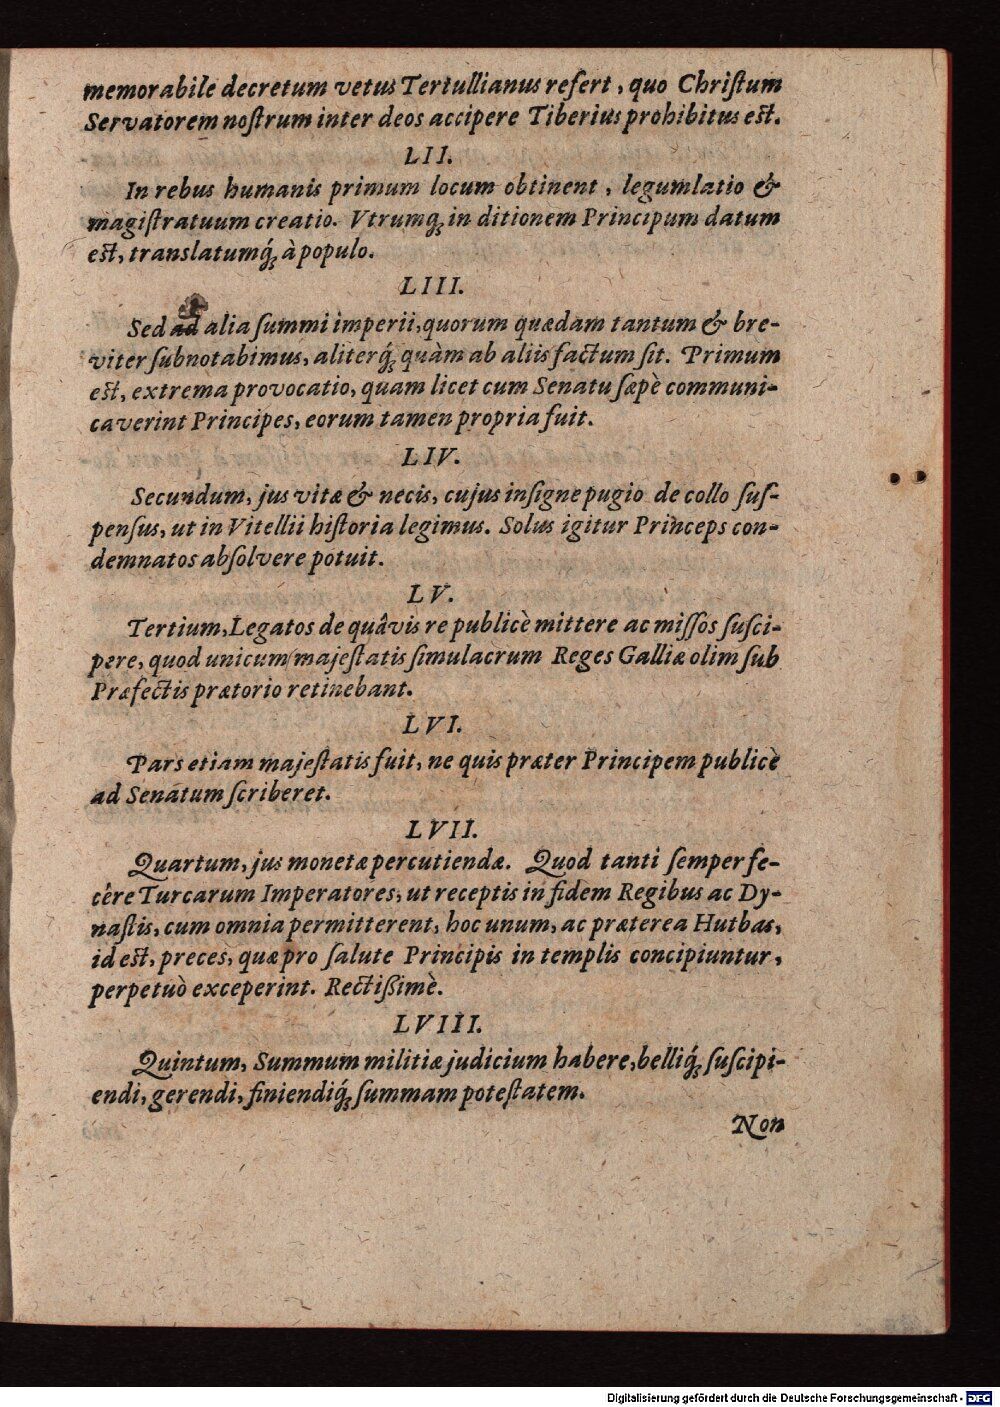 memorabile decretum vetus Tertullianus refert, quo Chriſtum
Servatorem noſtrum inter deos accipere Tiberius prohibitus eſt.
LII.
In rebus humanis primum locum obtinent, legumlatio &
magiſtratuum creatio. Vtrumq́; in ditionem Principum datum
eſt, translatumq́; à populo.
LIII.
Sed ad alia ſummi imperii, quorum quædam tantum & bre-
viter ſubnotabimus, aliterq́; quàm ab aliis factum ſit. Primum
eſt, extrema provocatio, quam licet cum Senatu ſæpè communi-
caverint Principes, eorum tamen propria fuit.
LIV.
Secundum, jus vitæ & necis, cujus inſigne pugio de collo ſuſ-
penſus, ut in Vitellii hiſtoria legimus. Solus igitur Princeps con-
demnatos abſolvere potuit.
LV.
Tertium, Legatos de quâvis re publicè mittere ac miſſos ſuſci-
pere, quod unicum majeſtatis ſimulacrum Reges Galliæ olim ſub
Præfectis prætorio retinebant.
LVI.
Pars etiam majeſtatis fuit, ne quis præter Principem publicè
ad Senatum ſcriberet.
LVII.
Quartum, jus monetæ percutiendæ. Quod tanti ſemper fe-
cêre Turcarum Imperatores, ut receptis in fidem Regibus ac Dy-
naſtis, cum omnia permitterent, hoc unum, ac præterea Hutbas,
id eſt, preces, quæ pro ſalute Principis in templis concipiuntur,
perpetuò exceperint. Rectißimè.
LVIII.
Quintum, Summum militiæ judicium habere, belliq́; ſuſcipi-
endi, gerendi, finiendiq́; ſummam poteſtatem.
Non
Digitalisierung gefördert durch die Deutsche Forschungsgemeinschaft - DFG